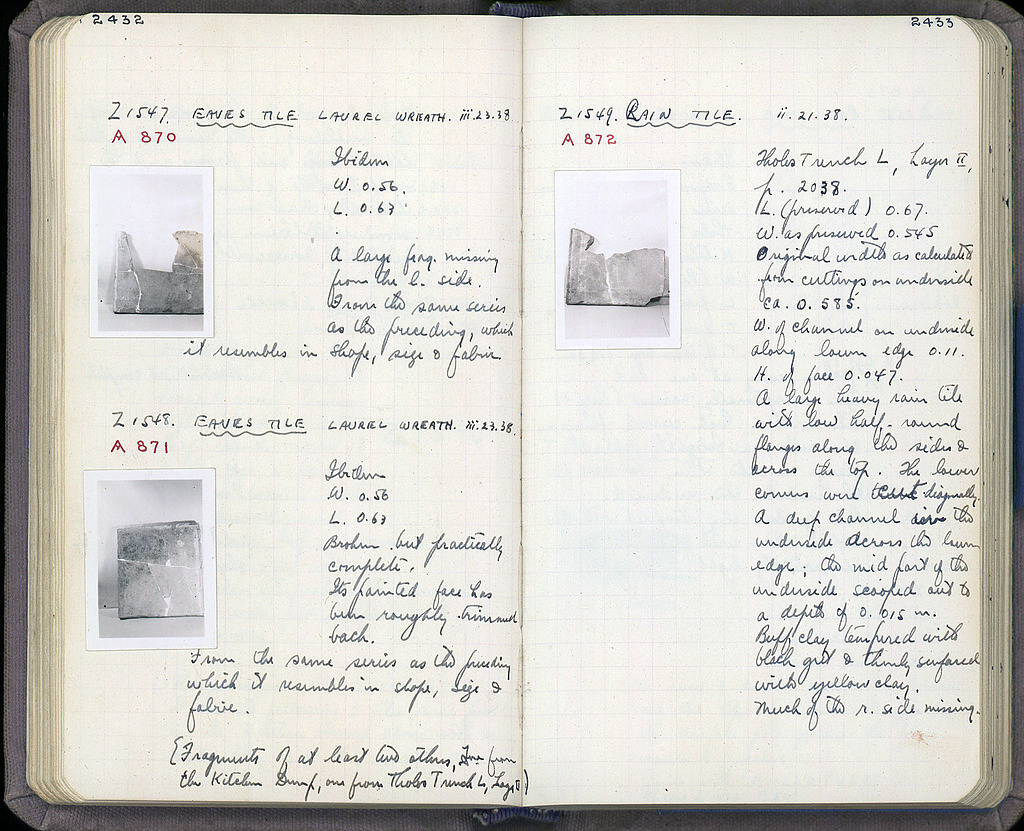 2432
Z 1547. EAVES TILE LAUREL WREATH. iii.23.38
A 870
Ibidem
W. 0.56.
L. 0.63
A large frag. missing
from the l. side.
From the same series
as the preceding, which
it resembles in shape, size & fabric
Z 1548. EAVES TILE LAUREL WREATH. iii.23.38.
A 871
Ibidem
W. 0.56
L. 0.63
Broken but practically
complete.
Its painted face has
been roughly trimmed
back.
From the same series as the preceding
which it resembles in shape, size &
fabric.
(Fragments of at least two others, from
the Kitchen Dump, one from Tholos Trench L, Layer II)
2433
Z 1549. RAIN TILE. ii.21.38.
A 872
Tholos Trench L, Layer II,
p. 2038.
L. (preserved) 0.67.
W. as preserved 0.545
Original width as calculated
from cuttings on underside
ca. 0.585.
W. of channel on underside
along lower edge 0.11.
H. of face 0.047.
A large heavy rain tile
with low half-round
flanges along the sides &
across the top. The lower
corners were cut diagonally.
A deep channel the
underside across the lower
edge; the mid part of the
underside scooped out to
a depth of 0.015 m.
Buff clay tempered with
black grit & thinly surfaced
with yellow clay.
Much of the r. side missing.